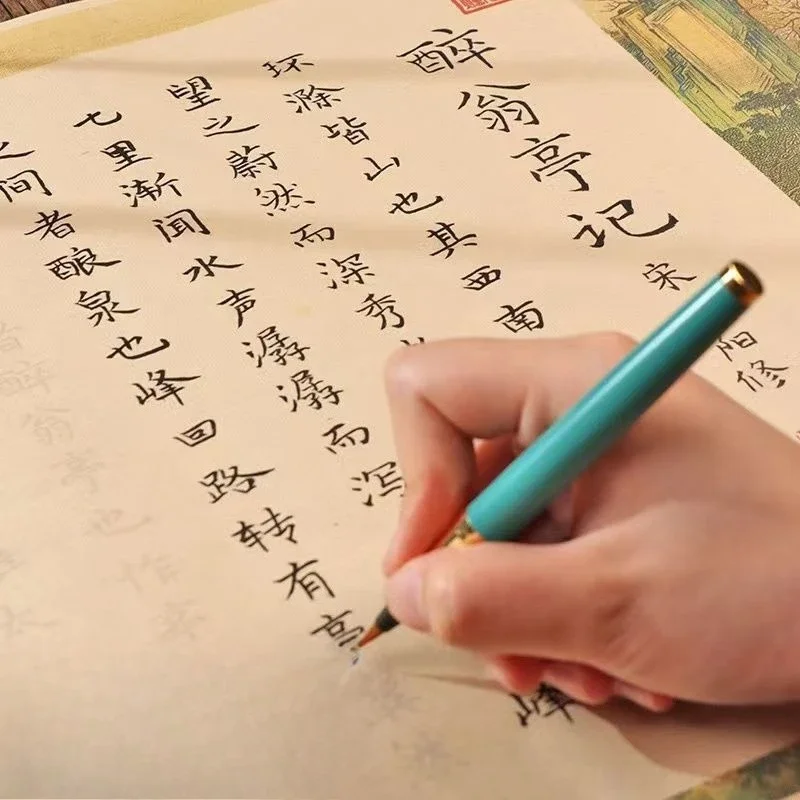 醉翁亭记
宋 阳修
环滁皆山也其西南
望之蔚然而深秀
七里渐闻水声潺潺而泻 峰
之间者酿泉也峰回路转有亭